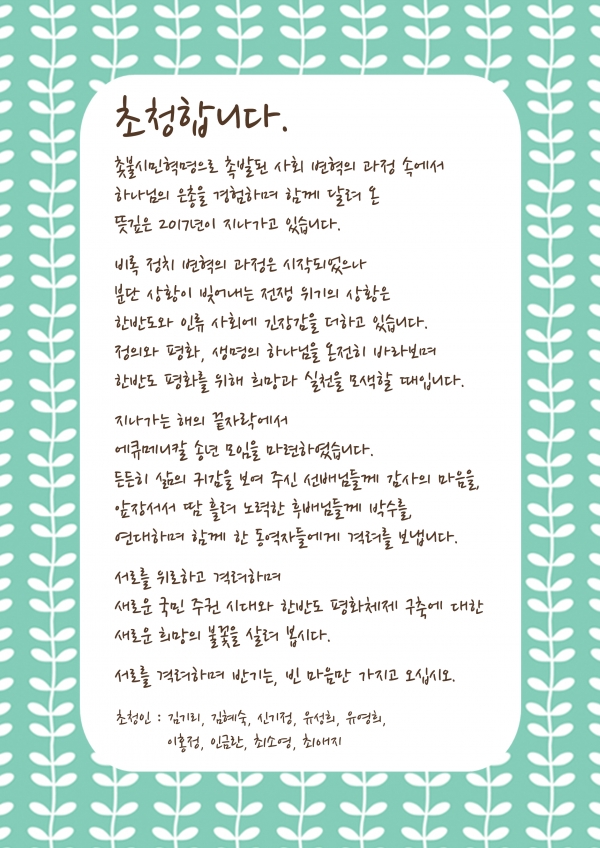 초청합니다.
촛불시민혁명으로 촉발된 사회 변혁의 과정 속에서
하나님의 은총을 경험하며 함께 달려 온
뜻깊은 2017년이 지나가고 있습니다.
비록 정치 변혁의 과정은 시작되었으나
분단 상황이 빚어내는 전쟁 위기의 상황은
한반도와 인류 사회에 긴장감을 더하고 있습니다.
정의와 평화, 생명의 하나님을 온전히 바라보며
한반도 평화를 위해 희망과 실천을 모색할 때입니다.
지나가는 해의 끝자락에서
에큐메니칼 송년 모임을 마련하였습니다.
든든히 삶의 귀감을 보여 주신 선배님들께 감사의 마음을,
앞장서서 땀 흘려 노력한 후배님들께 박수를,
연대하며 함께 한 동역자들에게 격려를 보냅니다.
서로를 위로하고 격려하며
새로운 국민 주권 시대와 한반도 평화체제 구축에 대한
새로운 희망의 불꽃을 살려 봅시다.
서로를 격려하며 반기는, 빈 마음만 가지고 오십시오.
초청인 : 김기리, 김혜숙, 신기정, 유성희, 유영희,
이홍정, 인금란, 최소영, 최애지